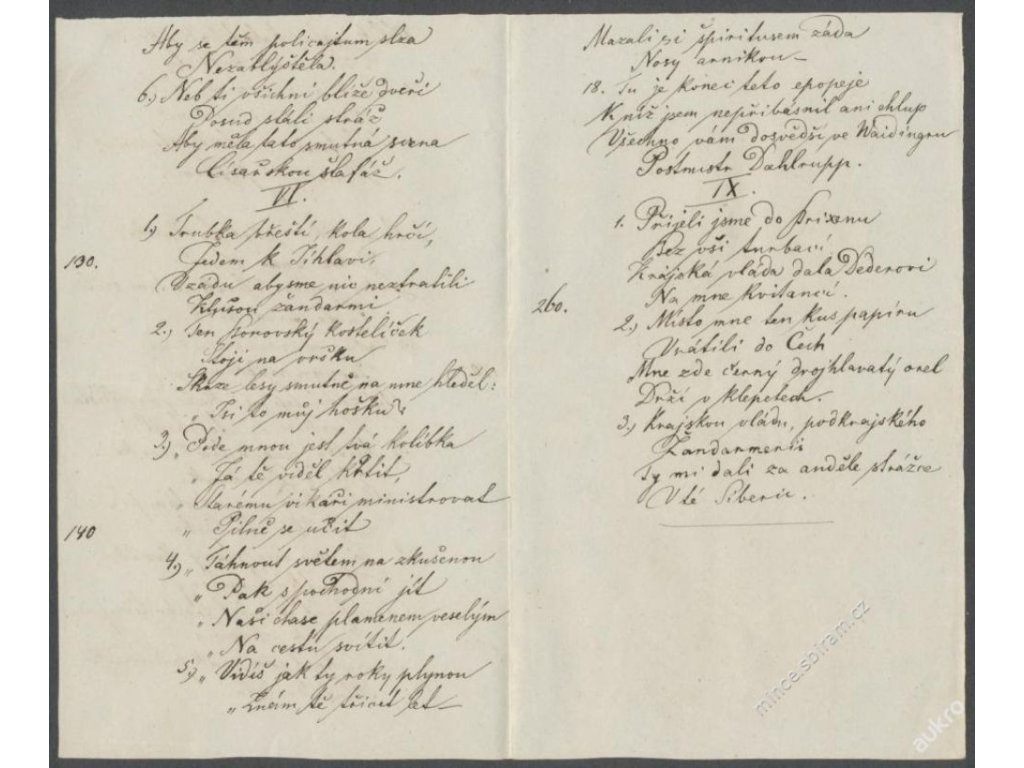 Aby se těm policajtum slza
Nezablýštěla.
6.) Neb ti všichni blíže dveří
Posud stáli stráž
Aby měla tato smutná scena
Císařskou štafáž.
VI.
1.) Trubka břeští, kola hrčí,
130.
Jedem k Jihlavi,
Vzadu abysme nic neztratili
Klusou žandarmi
2.) Ten borovský kostelíček
Stojí na vršku
Skrze lesy smutně na mne hleděl:
„ Jsi to můj hošku?
3.) „ Pode mnou jest tvá kolíbka
„ Já tě viděl křtít,
„ Starému vikáři ministrovat
140
„ Pilně se učit
4.) „ Táhnout světem na zkušenou
„ Pak s pochodní jít
„ Naší chase plamenem veselým
„ Na cestu svítit.
5.) „ Vidíš jak ty roky plynou
„ Znám tě třicet let –
Mazali si špiritusem záda
Nosy arnikou –
18. Tu je konec teto epopeje
K níž jsem nepřibásnil ani chlup
Všechno vám dosvědší ve Waidingru
Postmistr Dahlrupp.
IX.
1. Přijeli jsme do Brixenu
Bez vší turbací
Krajská vláda dala Dederovi
260.
Na mne kvitancí.
2.) Místo mne ten kus papíru
Vrátili do Čech
Mne zde černý dvojhlavatý orel
Drží v klepetech.
3.) Krajskou vládu, podkrajského
Žandarmerii
Ty mi dali za anděle strážce
V té Siberii.
mince.sbiram.cz
aukro